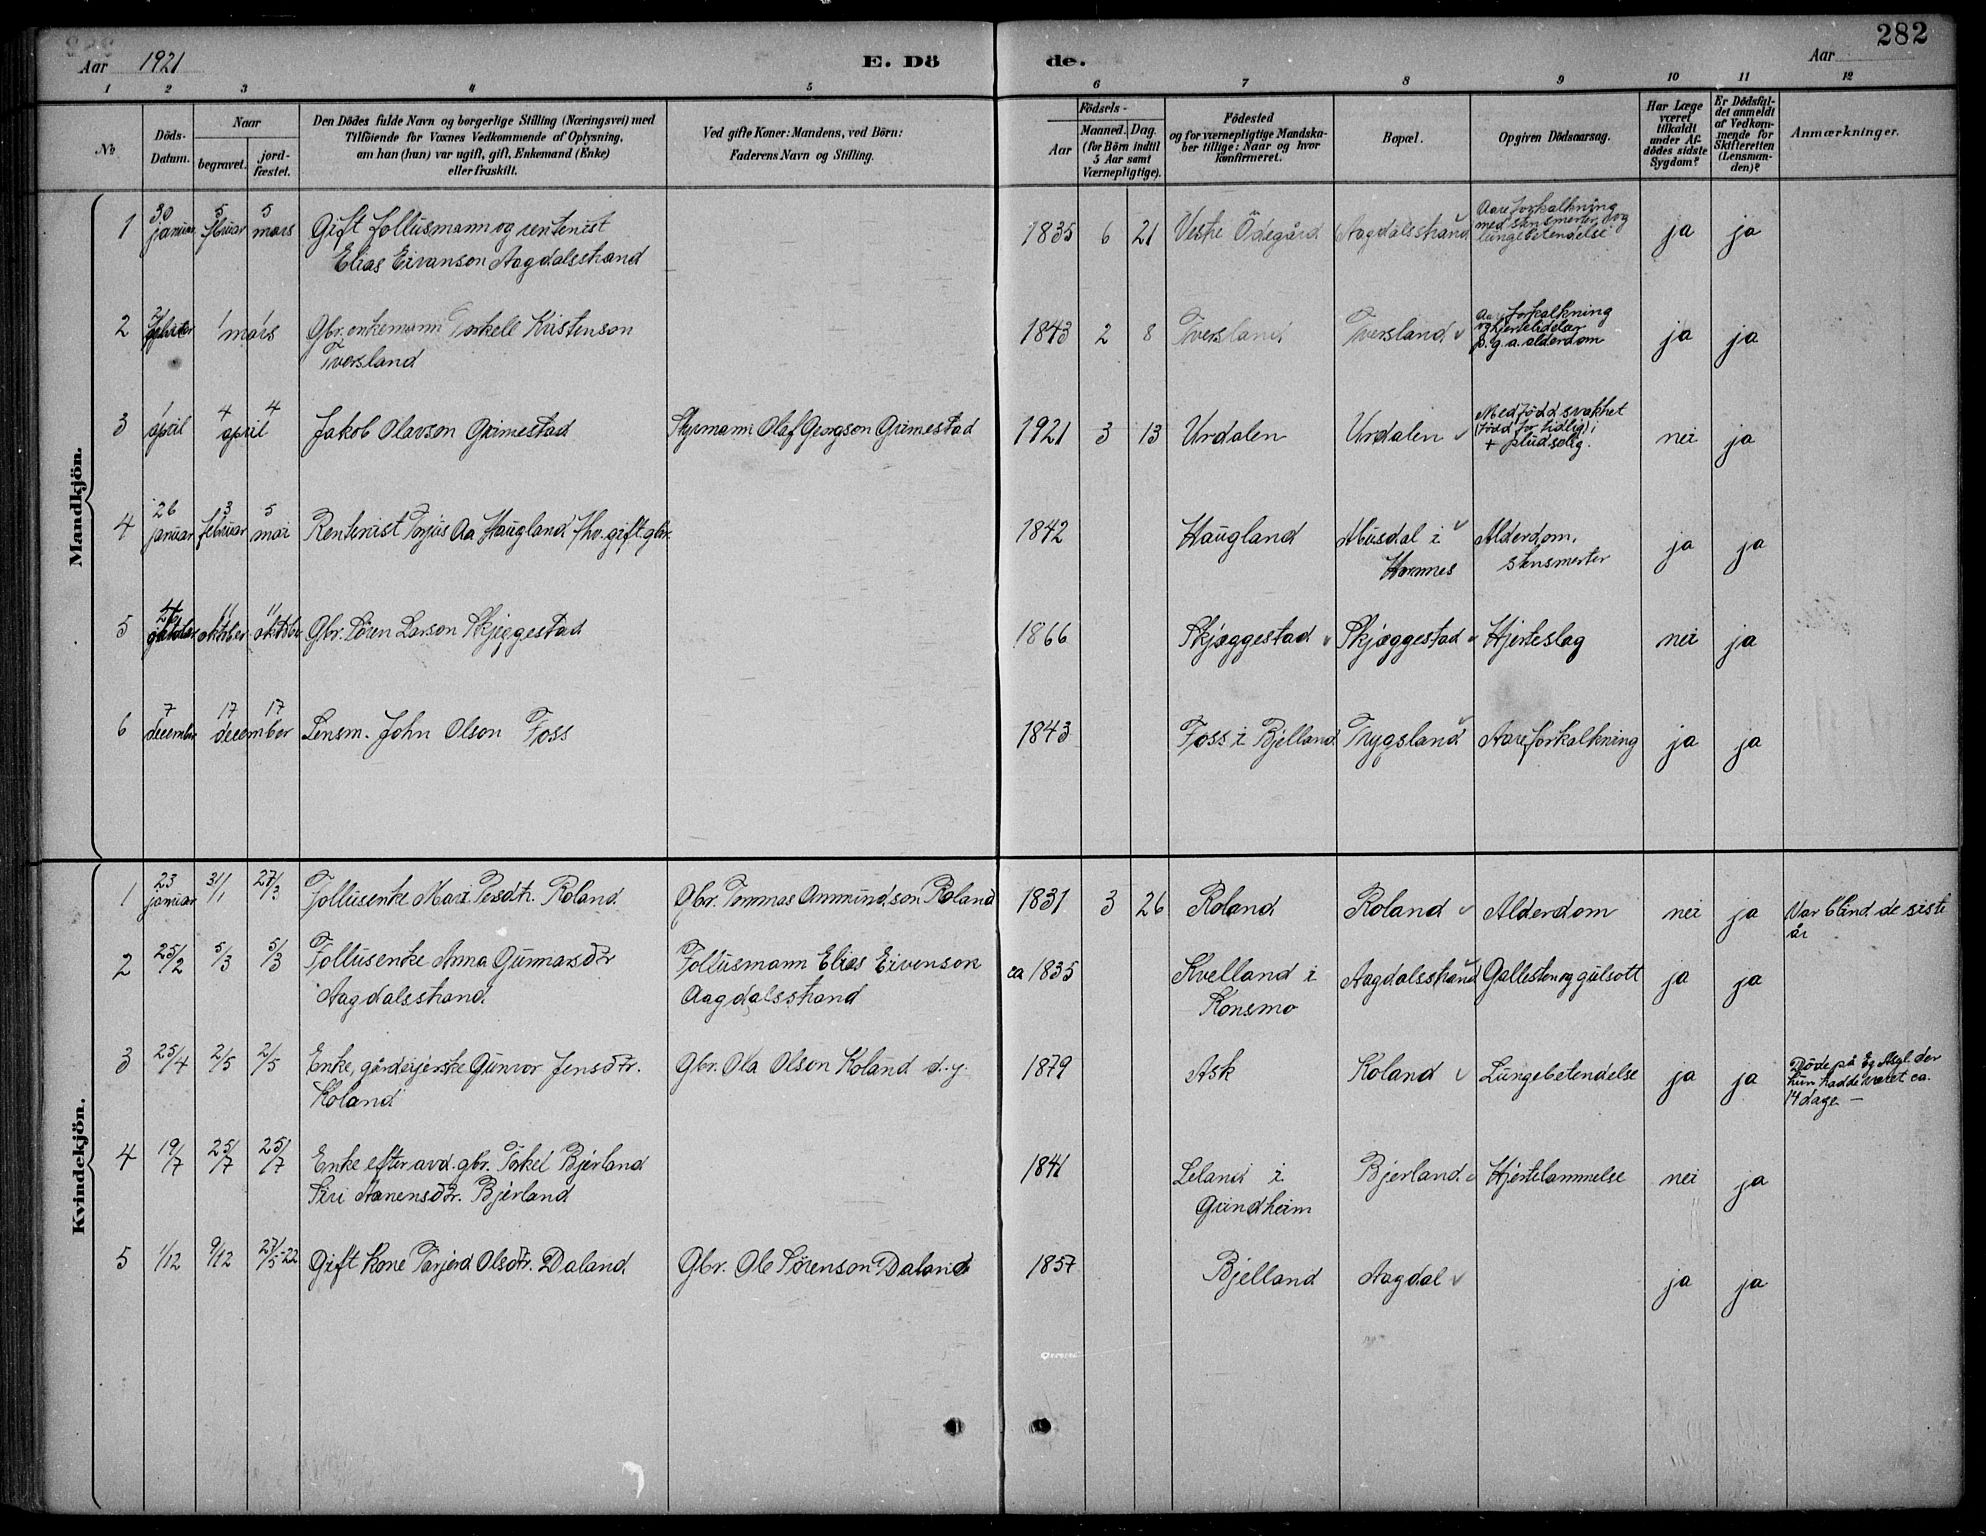 282
Aar 1921 E. Dö de. Aar
1 2 3 4 5 6 7 8 9 10 11 12
No
Döds-Datum.
Naar
begravet.
jord-fæstet.
Den Dödes fulde Navn og borgerlige Stilling (Næringsvei) med
Tilföiende for Voxnes Vedkommende af Oplysning,
om han (hun) var ugift, gift, Enkemand (Enke)
eller fraskilt.
Ved gifte Koner: Mandens, ved Börn:
Faderens Navn og Stilling.
Födsels-
Aar
Maaned. Dag.
(for Börn indtil
5 Aar samt
Værnepligtige).
Födested
og for værnepligtige Mandska-
ber tillige: Naar og hvor
konfirmeret.
Bopæl.
Opgiven Dödsaarsag.
Har Læge
været
tilkaldt
under Af-
dödes sidste
Sygdom?
Er Dödsfal-
det anmeldt
af Vedkom-
mende for
Skifteretten
(Lensman-
den)?
Anmærkninger.
Mandkjön.
1 30 januar 5 februar 5 mars Gift follusmann og rentenist
Elias Eivanson Aagdalsstrand
1835 6 21 Vestre Ödegård Aagdalsstrand Aareforkalkning
med stensmerter og
lungebetendelse ja ja
2 1 mars Gbr. enkemann Torkell Kristenson
Tversland
1843 2 8 Tversland Tversland Aareforkalkning
og hjertelidelse
p.g.a. alderdom ja ja
3 1 april 4 4 april Jakob Olavson Grimestad Styrmann Olaf Georgson Grimestad 1921 3 13 Urdalen Urdalen Medfödd svakhet
(född for tidlig);
+ pludselig. nei ja
4 26 januar 3 februar 5 mai Rentenist Torjus Aa Haugland fhv. gift gbr. 1842 Haugland Abusdal i
Hornnes Alderdom,
stensmerter ja ja
5 oktober 11 oktober 11 oktober Gbr. Sören Larson Skjeggestad 1866 Skjæggestad Skjæggestad Hjerteslag nei ja
6 7 december 17 17 december Lensm. John Olson Foss 1843 Foss i Bjelland Trygsland Aareforkalkning ja ja
Kvindekjön.
1 23 januar 31/1 27/3 Follusenke Mari Persdtr. Roland Gbr. Tommas Ommundson Roland 1831 3 26 Roland Roland Alderdom nei ja Var blind de siste
år
2 25/2 5/3 5/3 Follusenke Anna Gunnarsdtr
Aagdalsstrand.
Follusmann Elias Eivenson
Aagdalsstrand
ca 1835 Kvelland i
Konsmo Aagdalsstrand Gallesten og gulsott ja ja
3 25/4 2/5 2/5 Enke, gårdeierske Gunvor Jensdtr.
Koland
Gbr. Ola Olson Koland d.y. 1879 Ask Koland Lungebetendelse ja ja Döde på Eg Asyl. der
hun hadde været ca.
14 dage. —
4 19/7 25/7 25/7 Enke efter avd. gbr. Torkel Bjerland
Siri Aanensdtr. Bjerland
1841 Leland i
Grindheim Bjerland Hjertelammelse nei ja
5 1/12 9/12 27/5-22 Gift kone Tarjerd Olsdtr. Daland Gbr. Ole Sörenson Daland 1857 Bjelland Aagdal ja ja